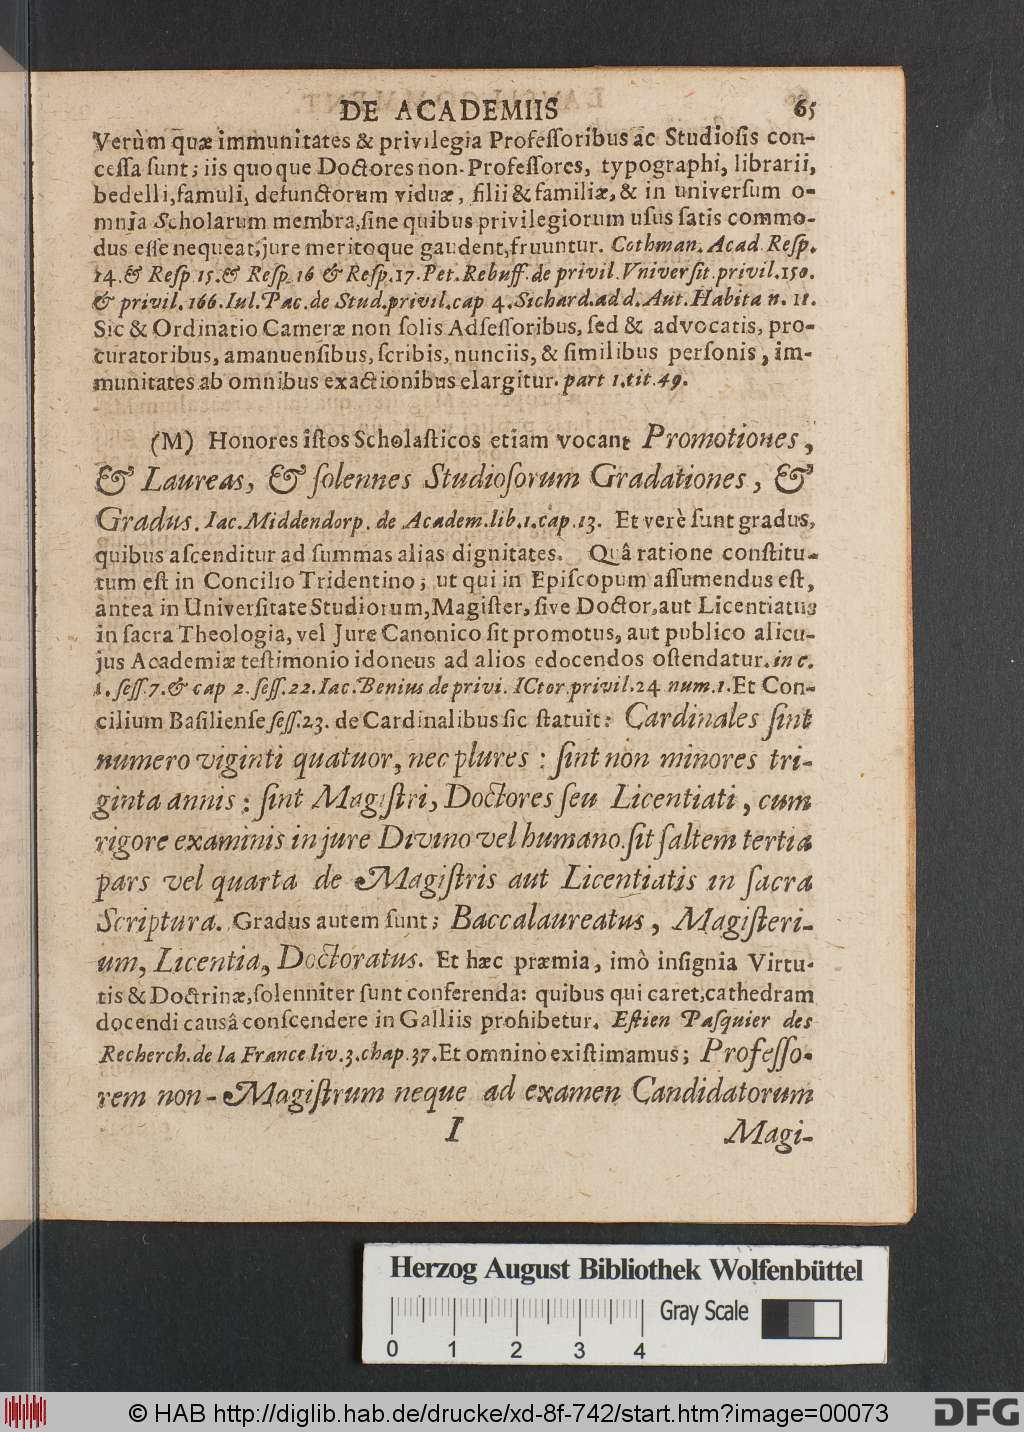 DE ACADEMIIS 65
Verùm quæ immunitates & privilegia Profeſſoribus ac Studioſis con-
ceſſa ſunt; iis quoque Doctores non-Profeſſores, typographi, librarii,
bedelli, famuli, defunctorum viduæ, filii & familiæ, & in univerſum o-
mnia Scholarum membra, ſine quibus privilegiorum uſus ſatis commo-
dus eſſe nequeat, jure meritoque gaudent, fruuntur. Cothman. Acad. Reſp.
14. & Reſp 15. & Reſp. 16 & Reſp. 17. Pet. Rebuff. de privil. Vniverſit. privil. 150.
& privil. 166. Iul. Pac. de Stud. privil. cap 4. Sichard. ad d. Aut. Habita n. 11.
Sic & Ordinatio Cameræ non ſolis Adſeſſoribus, ſed & advocatis, pro-
curatoribus, amanuenſibus, ſcribis, nunciis, & ſimilibus perſonis, im-
munitates ab omnibus exactionibus elargitur. part 1. tit. 49.
(M) Honores iſtos Scholaſticos etiam vocant Promotiones,
& Laureas, & ſolennes Studioſorum Gradationes, &
Gradus. Iac. Middendorp. de Academ. lib. 1. cap. 13. Et verè ſunt gradus,
quibus aſcenditur ad ſummas alias dignitates. Quâ ratione conſtitu-
tum eſt in Concilio Tridentino; ut qui in Epiſcopum aſſumendus eſt,
antea in Univerſitate Studiorum, Magiſter, ſive Doctor, aut Licentiatus
in ſacra Theologia, vel Jure Canonico ſit promotus, aut publico alicu-
jus Academiæ teſtimonio idoneus ad alios edocendos oſtendatur. in c.
1. ſeſſ. 7. & cap 2. ſeſſ. 22. Iac. Benius de privi. ICtor. privil. 24 num. 1. Et Con-
cilium Baſilienſe ſeſſ. 23. de Cardinalibus ſic ſtatuit: Cardinales ſint
numero viginti quatuor, nec plures: ſint non minores tri-
ginta annis: ſint Magiſtri, Doctores ſeu Licentiati, cum
rigore examinis in jure Divino vel humano. ſit ſaltem tertia
pars vel quarta de Magiſtris aut Licentiatis in ſacra
Scriptura. Gradus autem ſunt; Baccalaureatus, Magiſteri-
um, Licentia, Doctoratus. Et hæc præmia, imò inſignia Virtu-
tis & Doctrinæ, ſolenniter ſunt conferenda: quibus qui caret, cathedram
docendi causâ conſcendere in Galliis prohibetur. Eſtien Paſquier des
Recherch. de la France liv. 3. chap. 37. Et omnino exiſtimamus; Profeſſo-
rem non-Magiſtrum neque ad examen Candidatorum
I Magi-
Herzog August Bibliothek Wolfenbüttel
Gray Scale
0 1 2 3 4
© HAB http://diglib.hab.de/drucke/xd-8f-742/start.htm?image=00073
DFG